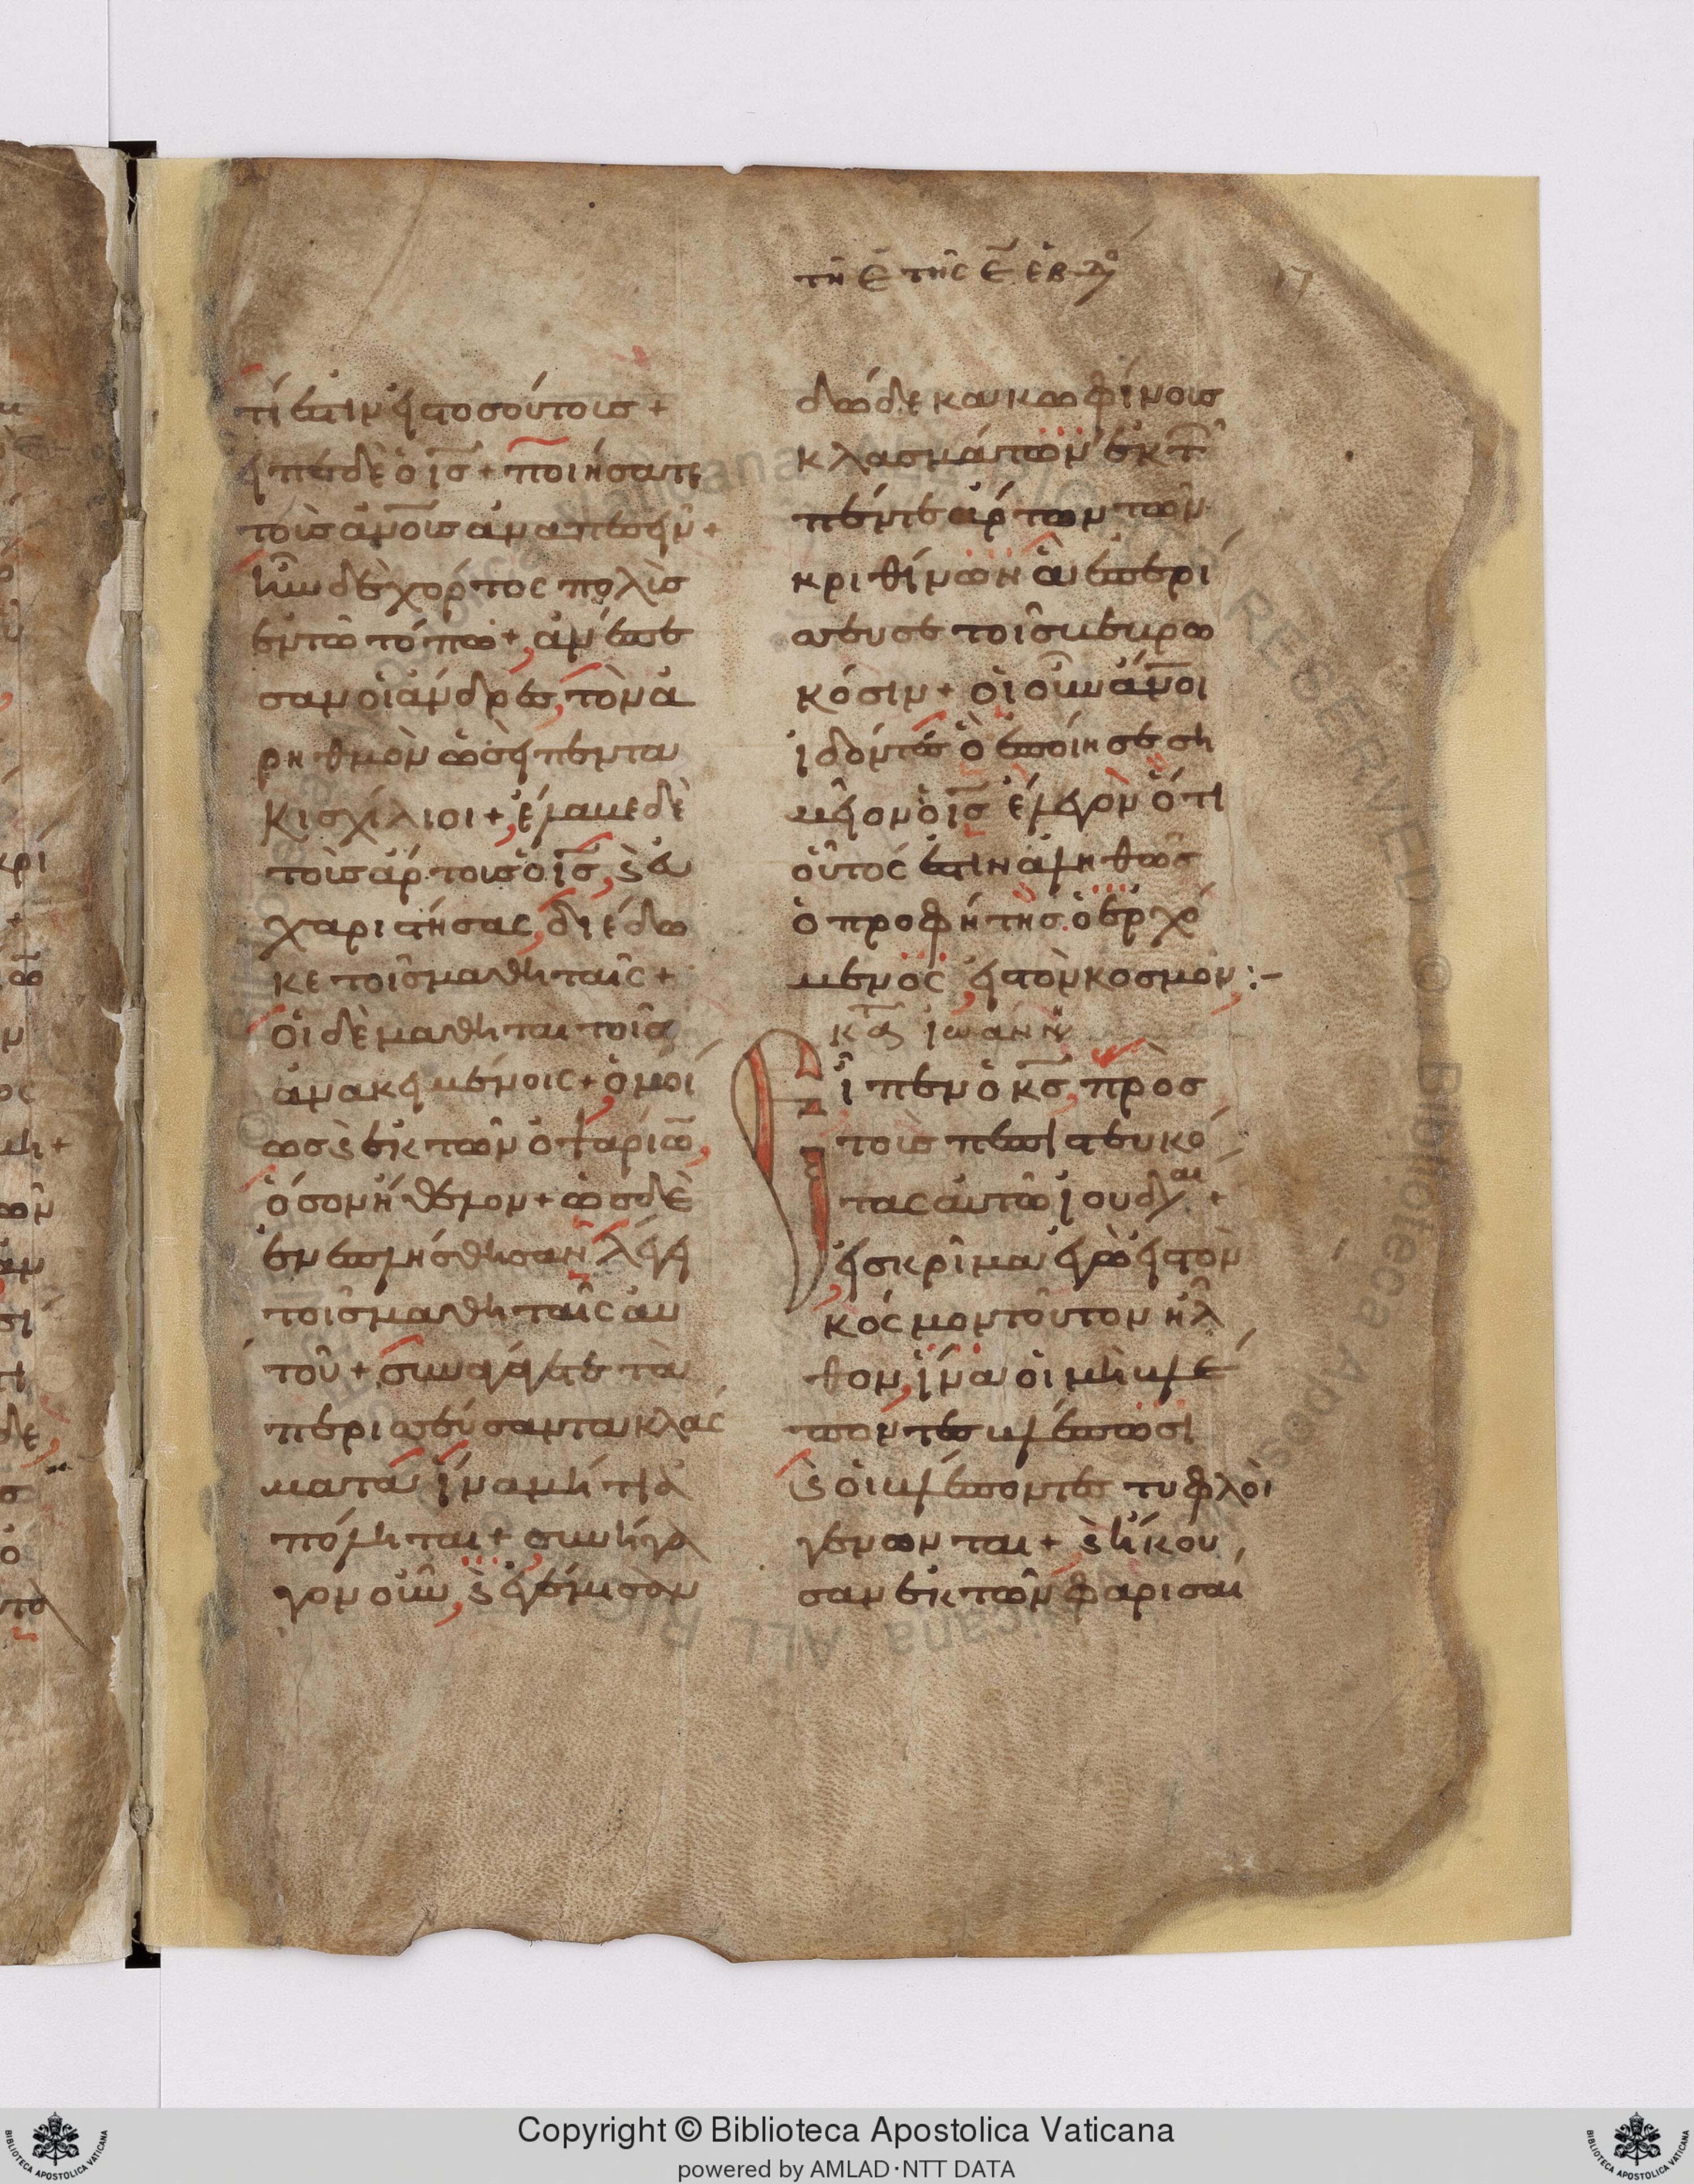 τῆ ε̄ τῆς ε̄ ἑβδο
17
τί ἐστιν εἰς τοσούτοις +
εἶπε δὲ ὁ ις̅ + ποιήσατε
τοὺς ἀν̅ους ἀναπεσεῖν +
ἦν δὲ χόρτος πολὺς
ἐν τῶ τόπω +, ἀνέπε
σαν οἱ ἄνδρες, τὸν ἀ
ρηθμὸν ὡσεὶ πεντα
κισχίλιοι +, ἔλαβε δὲ
τοὺς ἄρτους ὁ ις̅, ϗ εὐ
χαριστήσας, διέδω
κε τοῖς μαθηταῖς +
οἱ δὲ μαθηται τοῖς
ἀνακειμένοις +, ὁμοί
ως ϗ ἐκ τῶν ὀψαρίω̅,
ὅσον ἤθελον + ὡς δὲ
ἐνεπλήσθησαν λέγει
τοῖς μαθηταῖς αὐ
τοῦ + συναγάγετε τὰ
περισσεύσαντα κλάσ
ματα ἵνα μή τι ἀ
πόληται + συνήγα
γον οὖν, ϗ ἐγέμισαν
δώδεκα κωφίνους
κλασμάτων ἐκ τ̅
πέντε ἄρτων τῶν
κριθίνων ἃ ἐπερί
σσευσε τοῖς βεβρω
κόσιν + οἱ οὖν ἄν̅οι
ἰδόντες ὃ ἐποίησε ση
μεῖον ὁ ις̅ ἔλεγον ὅτι
οὗτός ἐστιν ἀληθῶς
ὁ προφήτης ὁ ἐρχό
μενος, εἰς τὸν κοσμον :-
κα̅τ ἰωάνν
Εἶπεν ὁ κς̅, πρὸς
τοὺς πεπιστευκό
τας αὐτῶ ἰουδαι +
εἰς κρῖμα ἐγὼ εἰς τὸν
κόσμον τοῦτον ἦλ
θον, ἵνα οἱ μὴ βλέ
ποντες βλέπωσι
ϗ οἱ βλέποντες τυφλοὶ
γένωνται + ϗ ἤκου
σαν ἐκ τῶν φαρισαί
Copyright © Biblioteca Apostolica Vaticana
powered by AMLAD·NTT DATA